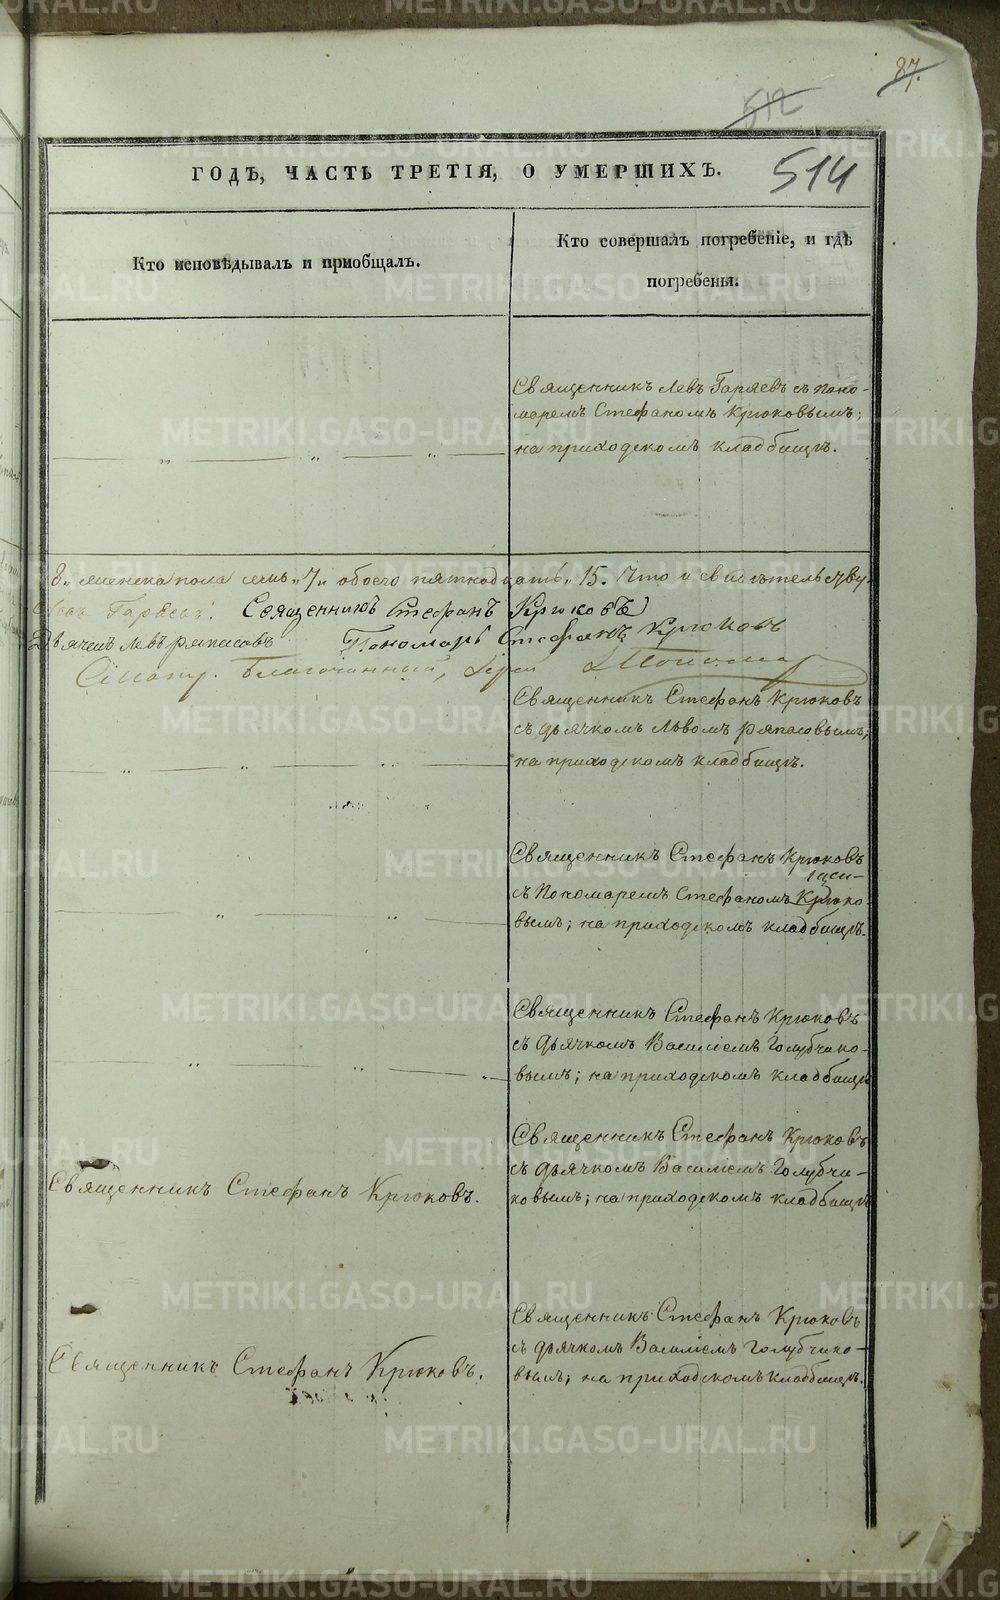 87.
512
514
ГОДЪ, ЧАСТЬ ТРЕТІЯ, О УМЕРШИХЪ.
Кто исповѣдывалъ и пріобщалъ.
Кто совершалъ погребеніе, и гдѣ
погребены.
Священникъ Левъ Гаряевъ съ поно-
маремъ Стефаномъ Крюковымъ;
на приходскомъ кладбищѣ.
8„ женска пола семь „7„ обоего пятнадцать „15. Что и свидѣтельству
Левъ Гаряевъ. Священникъ Стефанъ Крюковъ
Дьячекъ Левъ Ряпасовъ Пономарь Стефанъ Крюковъ
Благочинный, Іерей
Священникъ Стефанъ Крюковъ
съ дьячкомъ Львомъ Ряпасовымъ;
на приходскомъ кладбищѣ.
Священникъ Стефанъ Крюковъ
съ Пономаремъ Стефаномъ Крюко-
вымъ; на приходскомъ кладбищѣ.
Священникъ Стефанъ Крюковъ
съ дьячкомъ Василіемъ Голубчико-
вымъ; на приходскомъ кладбищѣ
Священникъ Стефанъ Крюковъ
съ дьячкомъ Василіемъ Голубчи-
ковымъ; на приходскомъ кладбищѣ
Священникъ Стефанъ Крюковъ.
Священникъ Стефанъ Крюковъ
съ дьячкомъ Василіемъ Голубчико-
вымъ; на приходскомъ кладбищѣ.
Священникъ Стефанъ Крюковъ.
METRIKI.GASO-URAL.RU